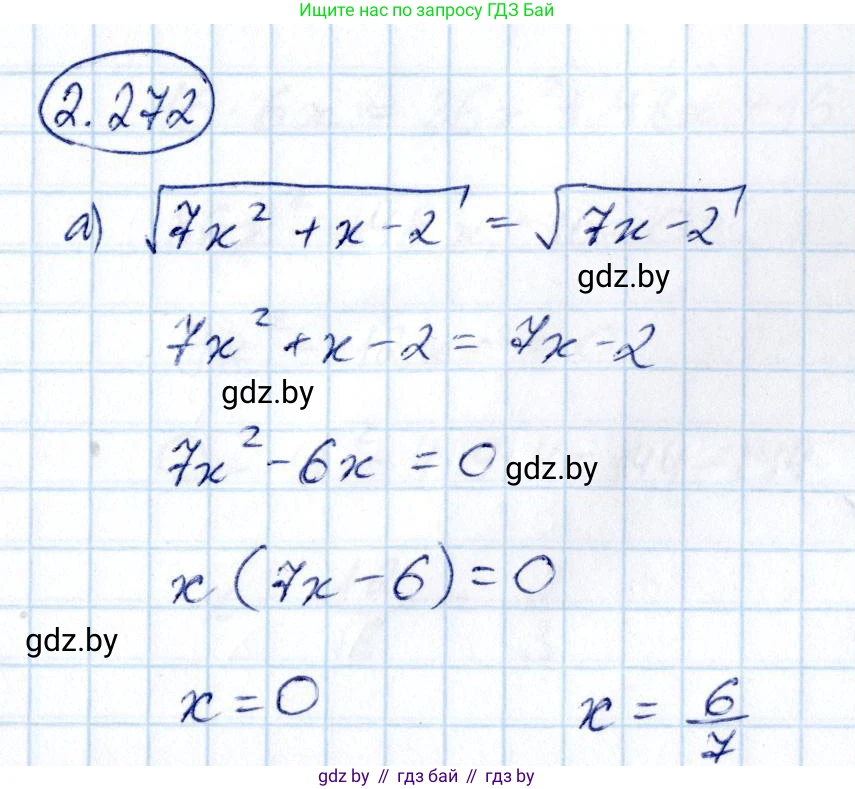 Ищите нас по запросу ГДЗ Бай
2.272
а) √(7x² + x - 2) = √(7x - 2)
gdz.by
7x² + x - 2 = 7x - 2
gdz.by
7x² - 6x = 0
gdz.by
x (7x - 6) = 0
gdz.by
x = 0 x = 6/7
gdz.by // гдз бай // gdz.by